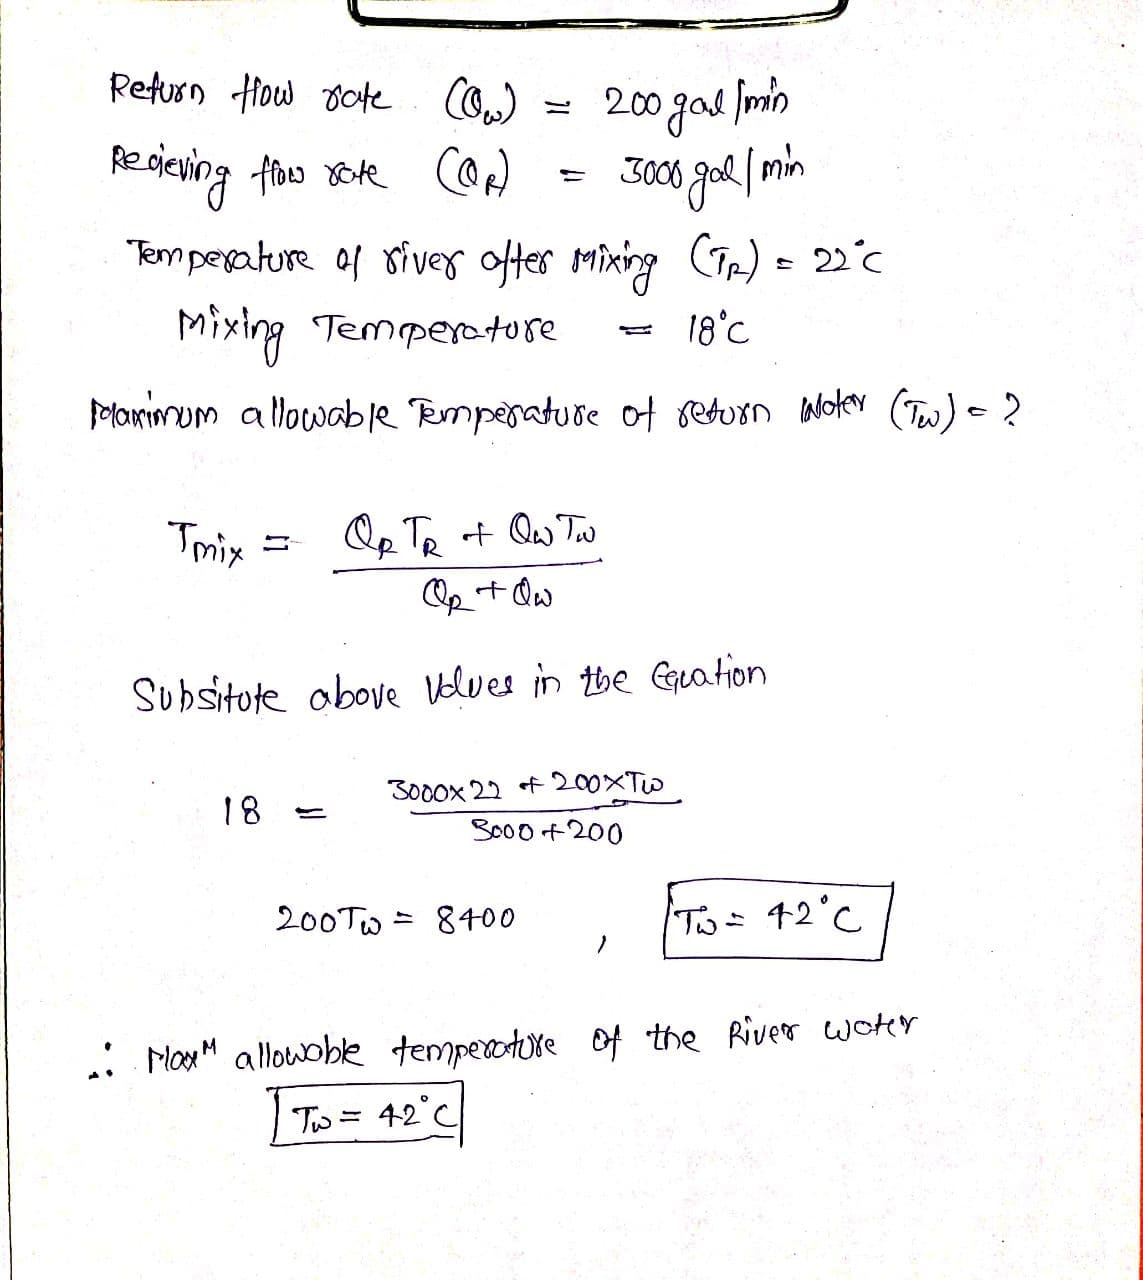 Return flow rate (Qw) = 200 gal/min
Recieving flow rate (QR) = 3000 gal/min
Temperature of river after Mixing (TR) = 22°C
Mixing Temperature = 18°C
Maximum allowable Temperature of return Water (Tw) = ?
Tmix = QR TR + Qw Tw
QR + Qw
Subsitute above Values in the Equation
18 = 3000x22 + 200xTw
3000+200
200Tw = 8400 , Tw = 42°C
∴ MaxM allowable temperature of the River water
Tw = 42°C